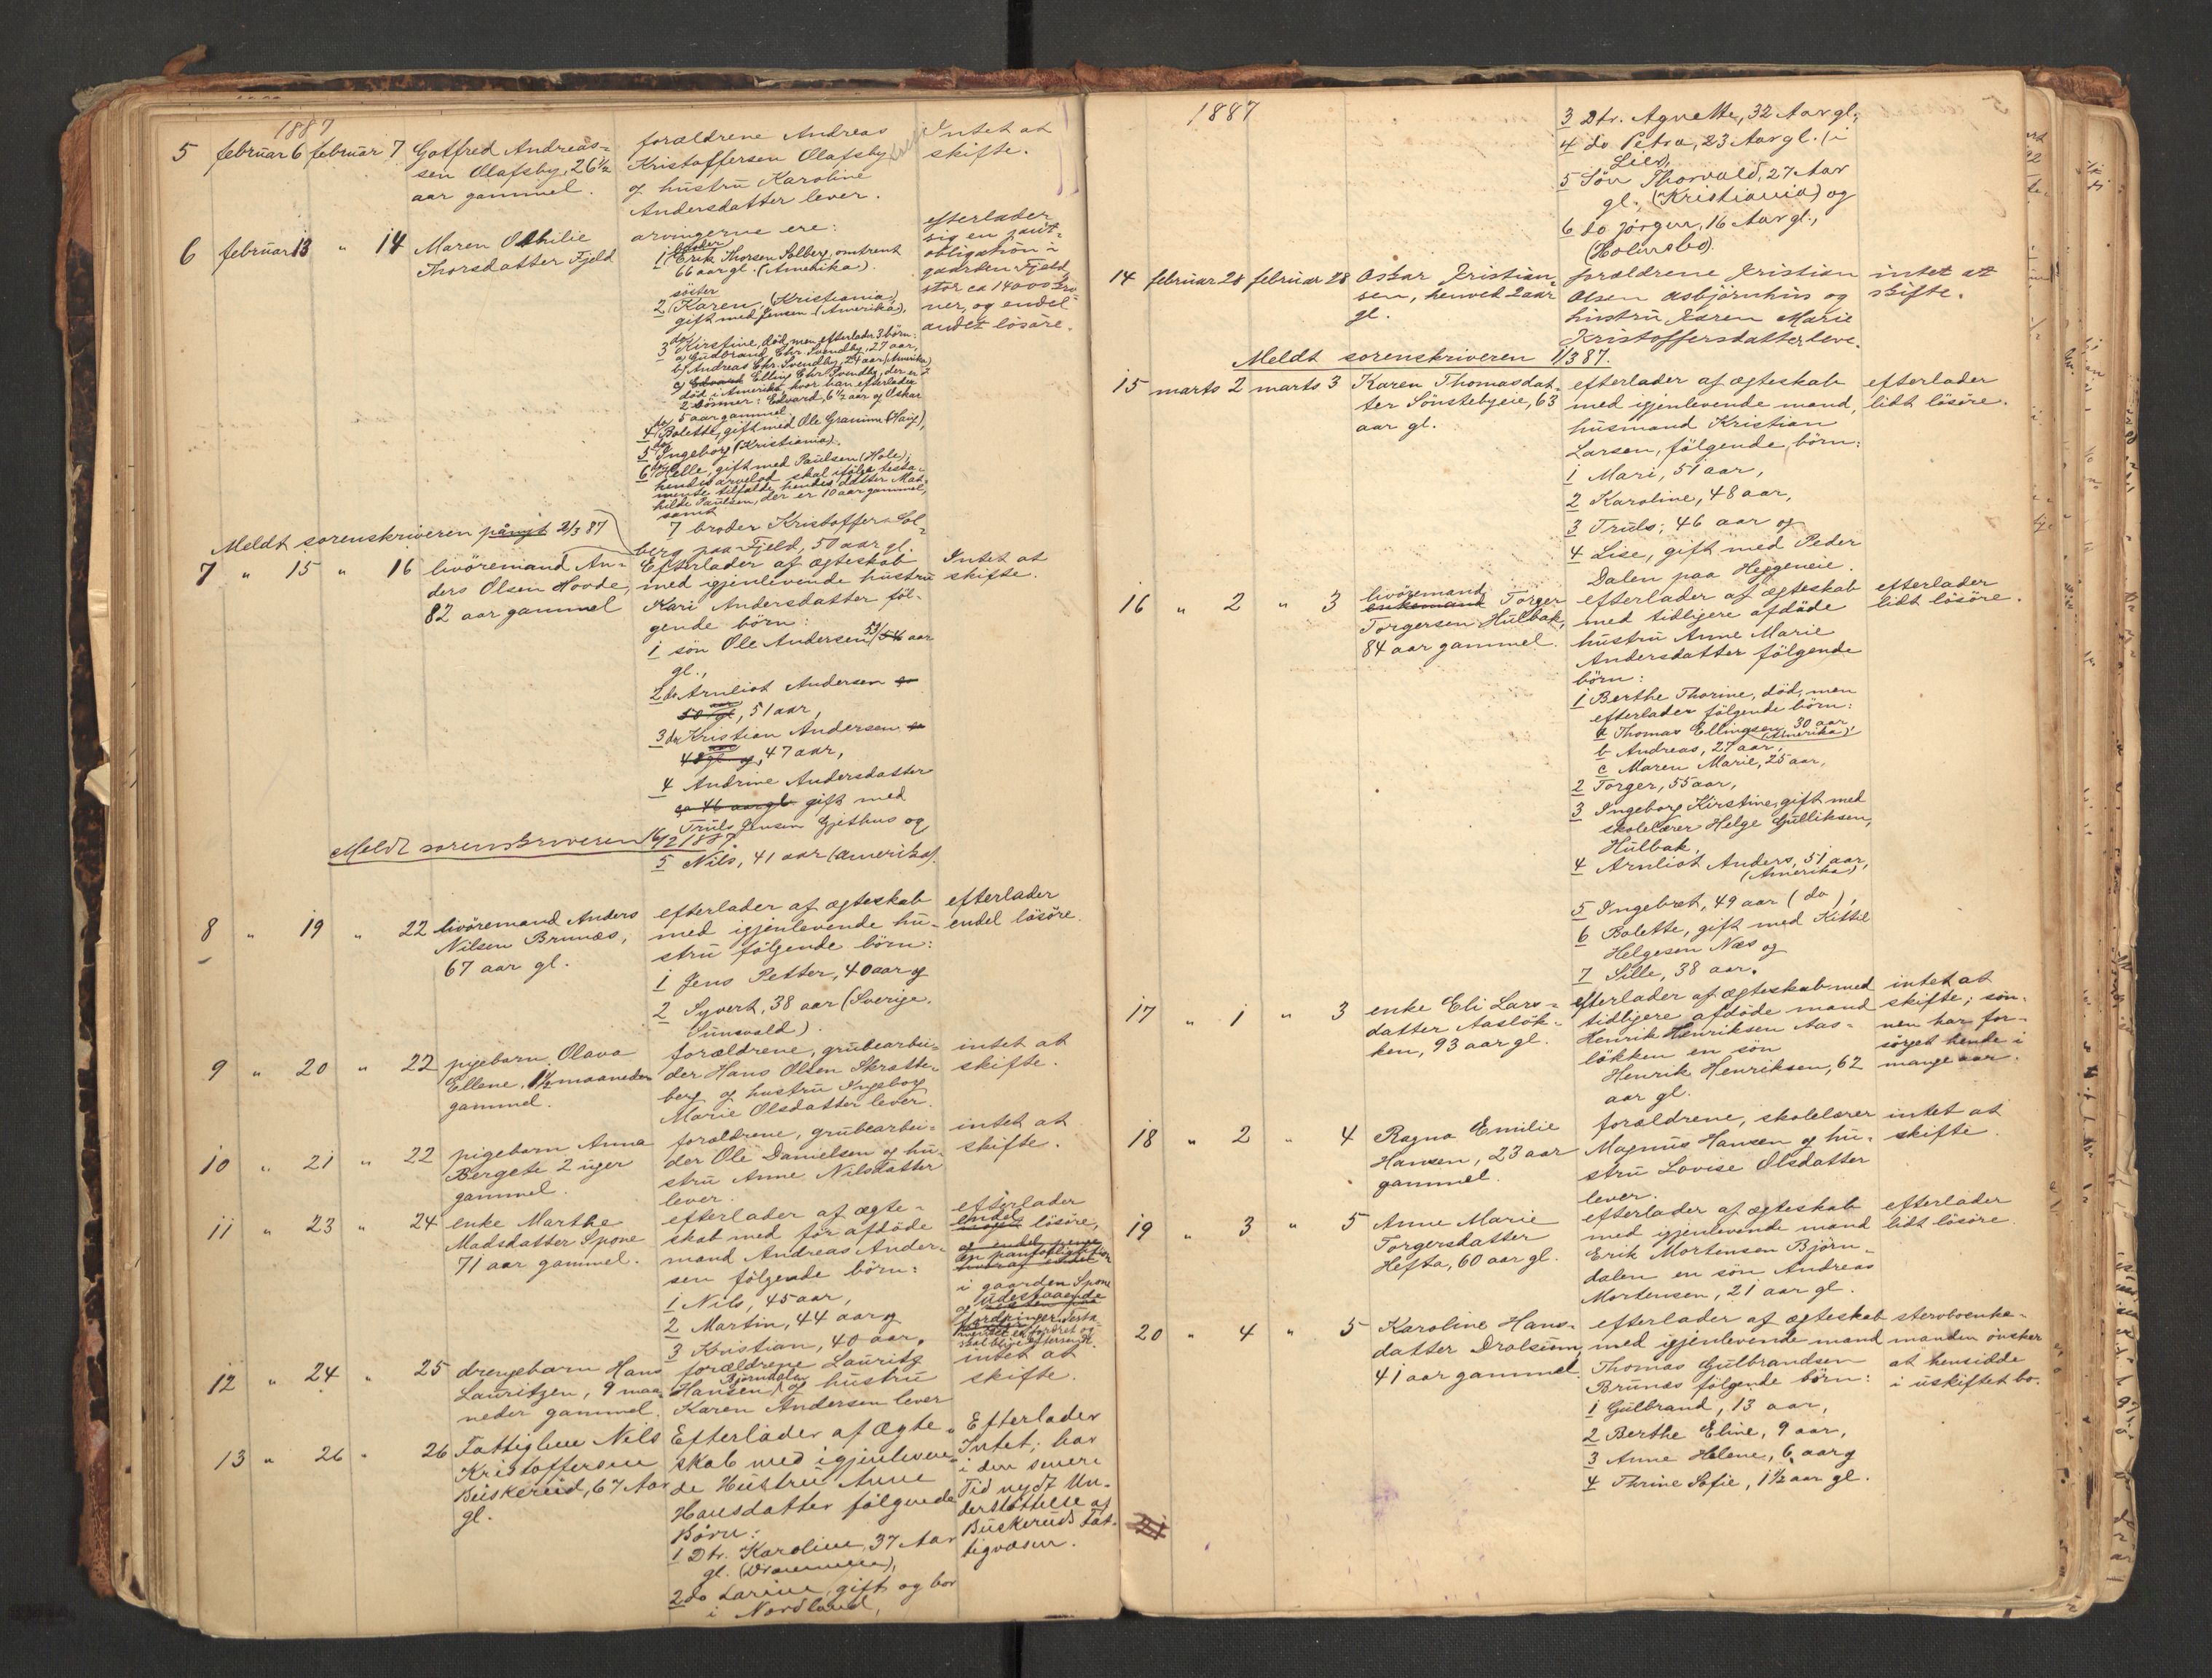 1887
5 februar 6 februar 7 Gotfred Andreas-
sen Olafsby, 26 1/2
aar gammel.
forældrene Andreas
Kristoffersen Olafsby
og hustru Karoline
Andersdatter lever.
Intet at
skifte.
6 februar 13 " 14 Maren Othilie
Thorsdatter Fjeld
arvingerne ere:
broder
1 Erik Thorsen Solberg, omtrent
66 aar gl. (Amerika).
söster
2 Karen, (Kristiania)
gift med Jensen (Amerika),
do
3 Kirstine, död, men efterlader 3 börn:
a) Gudbrand Chr. Svendby, 27 aar,
b) Andreas Chr. Svendby, 24 aar (Amerika)
c) Edvard Elling Chr. Svendby, der er
död i Amerika, hvor han efterlader
2 sönner: Edvard, 6 1/2 aar og Oskar
5 aar gammel.
do
4 Bolette, gift med Ole Gramme (Haug),
do
5 Ingeborg (Kristiania).
do
6 Helle, gift med Paulsen (Hole);
hendes arvelod skal ifölge testa-
mente tilfalde hendes datter Mat-
hilde Paulsen, der er 10 aar gammel,
samt
7 broder Kristoffer Sol-
berg paa Fjeld, 50 aar gl.
efterlader
sig en pant-
obligation i
gaarden Fjeld,
stor ca 14000 kro
ner, og endel
andet lösöre.
Meldt sorenskriveren pånyt 2/3 87
7 " 15 " 16 livöremand An-
ders Olsen Hovde,
82 aar gammel
Efterlader af ægteskab
med igjenlevende hustru
Kari Andersdatter föl-
gende börn:
1 sön Ole Andersen 53/54 aar
gl.,
2 do Arnliot Andersen
50 aar gl, 51 aar,
3 do Kristian Andersen
48 aar gl og, 47 aar,
4 Andrine Andersdatter
ca 46 aar gl. gift med
Truls Jensen Gjethus og
Intet at
skifte.
Meldt sorenskriveren 16/2 1887.
5 Nils, 41 aar (Amerika).
8 " 19 " 22 livöremand Anders
Nilsen Brunæs,
67 aar gl.
efterlader af ægteskab
med igjenlevende hu-
stru fölgende börn:
1 Jens Petter, 40 aar og
2 Syvert, 38 aar (Sverige.
Sunsvald).
efterlader
endel lösöre.
9 " 20 " 22 pigebarn Olava
Ellene, 1 1/2 maaneder
gammel.
forældrene, grubearbei-
der Hans Olsen Skratte-
berg og hustru Ingeborg
Marie Olsdatter lever.
intet at
skifte.
10 " 21 " 22 pigebarn Anna
Bergete 2 uger
gammel.
forældrene, grubearbei-
der Ole Danielsen og hu-
stru Anne Nilsdatter
lever.
intet at
skifte.
11 " 23 " 24 enke Marthe
Madsdatter Spone
71 aar gammel.
efterlader af ægte-
skab med för afdöde
mand Andreas Ander-
sen fölgende börn:
1 Nils, 45 aar,
2 Martin, 44 aar og
3 Kristian, 40 aar.
efterlader
endel lösöre,
en pantobligation
i gaarden Spone
og udestaaende
fordringer.
12 " 24 " 25 drengebarn Hans
Lauritzen, 9 maa-
neder gammel.
forældrene Lauritz
Hansen Björndalen og hustru
Karen Andersen lever
intet at
skifte.
13 " 26 " 26 Fattiglem Nils
Kristoffersen
Buskerud, 67 Aar
gl.
Efterlader af Ægte-
skab med igjenleven-
de Hustru Anne
Hansdatter følgende
Børn:
1 Dtr. Karoline, 37 Aar
gl. (Drammen),
2 do Karine, gift og bor
i Nordland,
Efterlader
Intet; har
i den senere
Tid nydt Un-
derstøttelse af
Buskeruds Fat-
tigvæsen.
1887
3 Dtr. Agnethe, 32 Aar gl.,
4 do Petra, 23 Aar gl. (i
Lier),
5 Søn Thorvald, 27 Aar
gl., (Kristiania) og
6 do Jørgen, 16 Aar gl.,
(Holmsbo).
14 februar 28 februar 28 Oskar Kristian-
sen, henved 2 aar
gl.
forældrene Kristian
Olsen Asbjörnhus og
hustru Karen Marie
Kristoffersdatter leve.
intet at
skifte.
Meldt sorenskriveren 1/3 87.
15 marts 2 marts 3 Karen Thomasdat-
ter Sönstebyeie, 63
aar gl.
efterlader af ægteskab
med igjenlevende mand,
husmand Kristian
Larsen, fölgende börn:
1 Mari, 51 aar,
2 Karoline, 48 aar,
3 Truls, 46 aar og
4 Lise, gift med Peder
Dalen paa Heggeneie.
efterlader
lidt lösöre.
16 " 2 " 3 livöremand
enkemand Torger
Torgersen Hulbak,
84 aar gammel.
efterlader af ægteskab
med tidligere afdöde
hustru Anne Marie
Andersdatter fölgende
börn:
1 Berthe Thorine, död, men
efterlader fölgende börn:
a Thomas Ellingsen, 30 aar
(Amerika),
b Andreas, 27 aar,
c Maren Marie, 25 aar,
2 Torger, 55 aar,
3 Ingeborg Kirstine, gift med
skolelærer Helge Gulliksen,
Hulbak,
4 Arnliot Anders, 51 aar,
(Amerika),
5 Ingebret, 49 aar (do),
6 Bolette, gift med Kittil
Helgesen Næs og
7 Sille, 38 aar.
efterlader
lidt lösöre.
17 " 1 " 3 enke Eli Lars-
datter Aaslök-
ken, 93 aar gl.
efterlader af ægteskab med
tidligere afdöde mand
Henrik Henriksen Aas-
lökken en sön
Henrik Henriksen, 62
aar gl.
intet at
skifte; søn-
nen har for-
sörget hende i
mange aar.
18 " 2 " 4 Ragna Emilie
Hansen, 23 aar
gammel.
forældrene, skolelærer
Magnus Hansen og hu-
stru Lovise Olsdatter
lever.
intet at
skifte
19 " 3 " 5 Anne Marie
Torgersdatter
Hefta, 60 aar gl.
efterlader af ægteskab
med igjenlevende mand
Erik Mortensen Björn-
dalen en sön Andreas
Mortensen, 21 aar gl.
efterlader
lidt lösöre.
20 " 4 " 5 Karoline Hans-
datter Drolsum,
41 aar gammel.
efterlader af ægteskab
med igjenlevende mand
Thomas Gulbrandsen
Brunæs fölgende börn:
1 Gulbrand, 13 aar,
2 Berthe Eline, 9 aar,
3 Anne Helene, 6 aar og
4 Thrine Sofie, 1 1/2 aar gl.
stervboenke-
manden önsker
at hensidde
i uskiftet bo.